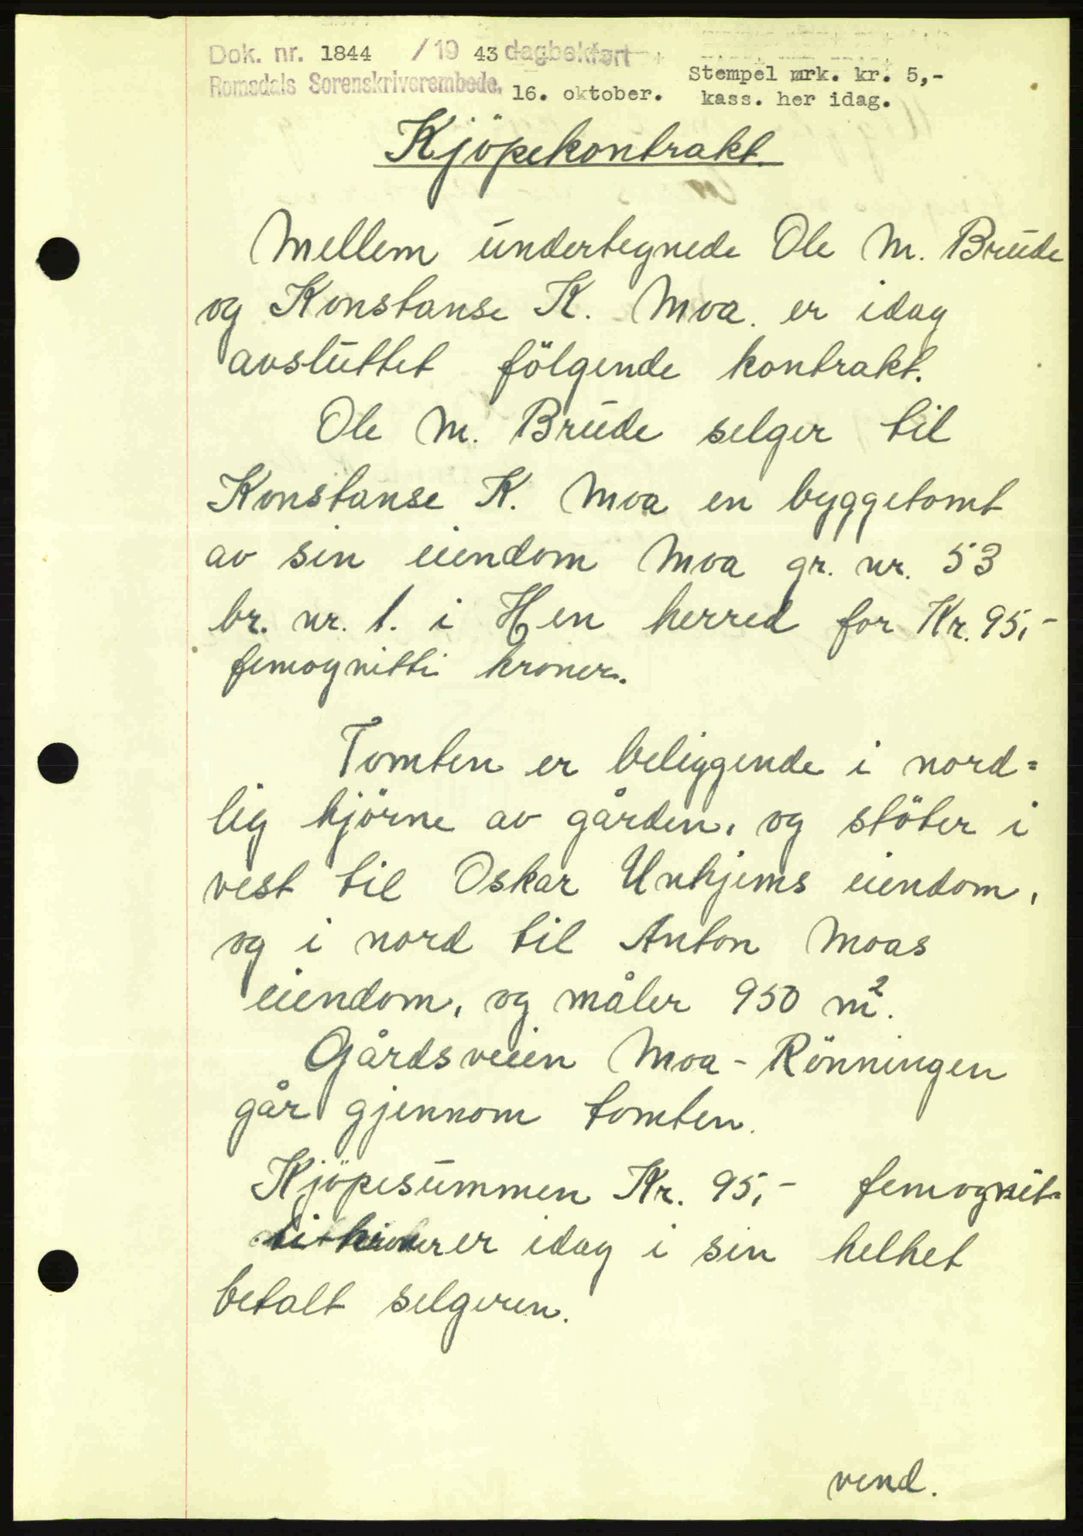 Dok. nr. 1844 /19 43 dagbokført
Stempel mrk. kr. 5,-
Romsdals Sorenskriverembede, 16. oktober.
kass. her idag.
Kjöpekontrakt.
Mellem undertegnede Ole M. Brude
og Konstanse K. Moa. er idag
avsluttet fölgende kontrakt.
Ole M. Brude selger til
Konstanse K. Moa en byggetomt
av sin eiendom Moa gr. nr. 53
br. nr. 1. i Hen herred for Kr. 95,-
femognitti kroner.
Tomten er beliggende i nord=
lig hjörne av gården, og stöter i
vest til Oskar Unhjems eiendom,
og i nord til Anton Moas
eiendom, og måler 950 m².
Gårdsveien Moa - Rönningen
går gjennom tomten.
Kjöpesummen Kr. 95,- femognit-
ti kroner er idag i sin helhet
betalt selgeren.
vend.